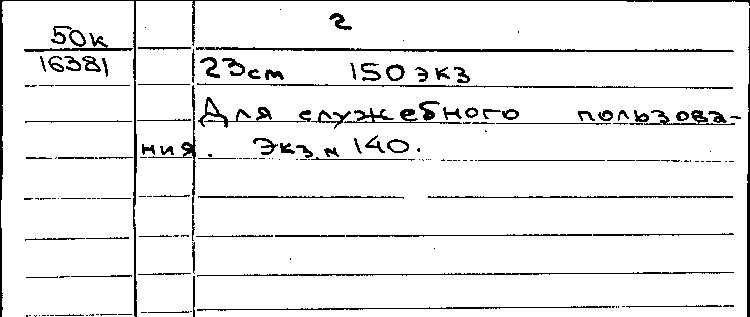 2
50к
16381 23см 150 экз
Для служебного пользова-
ния. Экз. н 140.